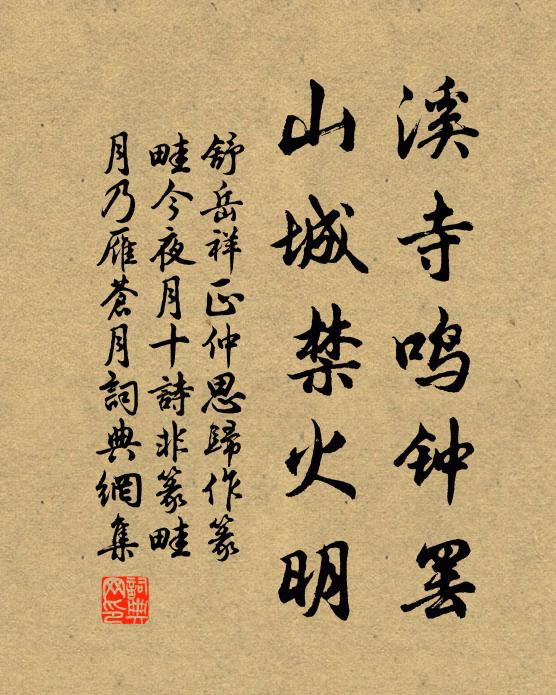 溪寺鸣钟罢
山城禁火明
舒岳祥正仲思歸作篆
畦今夜月十詩非篆畦
月乃雁蒼月詞典網集
詞典网印